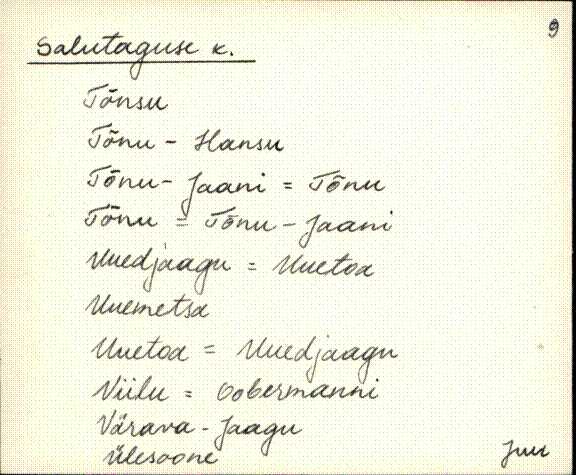 9
Salutaguse k.
Tõnsu
Tõnu - Hansu
Tõnu - Jaani = Tõnu
Tõnu = Tõnu - Jaani
Uuedjaagu = Uuetoa
Uuemetsa
Uuetoa = Uuedjaagu
Viilu = Oobermanni
Värava - Jaagu
Ülesoone
Juu